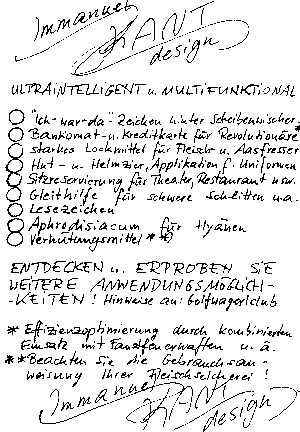 Immanuel
KANT
design
ULTRAINTELLIGENT u. MULTIFUNKTIONAL
"Ich-war-da" Zeichen unter Scheibenwischer
Bankomat- u. Kreditkarte für Revolutionäre*
starkes Lockmittel für Fleisch- u. Aasfresser
Hut- u. Helmzier, Applikation f. Uniformen
Sitzreservierung für Theater, Restaurant usw.
Gleithilfe für schwere Schlitten u.a.
Lesezeichen
Aphrodisiacum für Hyänen
Verhütungsmittel**
ENTDECKEN u. ERPROBEN SIE
WEITERE ANWENDUNGSMÖGLICH-
-KEITEN! Hinweise an: Golfnagerlclub
* Effizienzoptimierung durch kombinierten
Einsatz mit Faustfeuerwaffen u. ä.
** Beachten sie die Gebrauchsan-
weisung Ihrer Fleischselcherei!
Immanuel
KANT
design